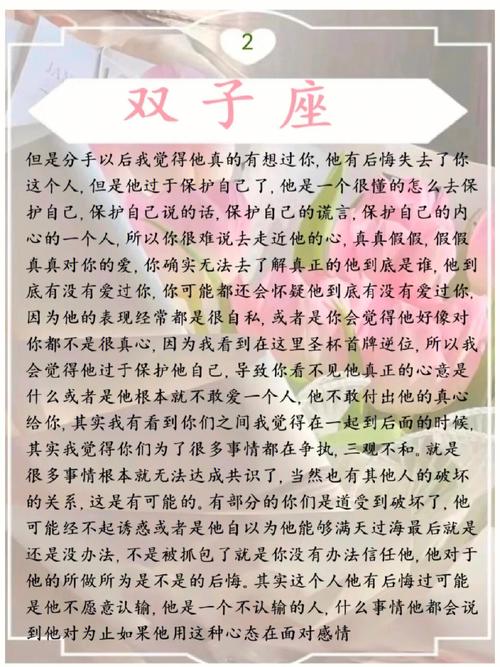 2
双子座
但是分手以后我觉得他真的有想过你,他有后悔失去了你
这个人,但是他过于保护自己了,他是一个很懂的怎么去保
护自己,保护自己说的话,保护自己的谎言,保护自己的内
心的一个人,所以你很难说去走近他的心,真真假假,假假
真真对你的爱,你确实无法去了解真正的他到底是谁,他到
底有没有爱过你,你可能都还会怀疑他到底有没有爱过你,
因为他的表现经常都是很自私,或者是你会觉得他好像对
你都不是很真心,因为我看到在这里圣杯首牌逆位,所以我
会觉得他过于保护他自己,导致你看不见他真正的心意是
什么或者是他根本就不敢爱一个人,他不敢付出他的真心
给你,其实我有看到你们之间我觉得在一起到后面的时候,
其实我觉得你们为了很多事情都在争执,三观不和。就是
很多事情根本就无法达成共识了,当然也有其他人的破坏
的关系,这是有可能的。有部分的你们是道受到破坏了,他
可能经不起诱惑或者是他自以为他能够满天过海最后就是
还是没办法,不是被抓包了就是你没有办法信任他,他对于
他的所做所为是不是的后悔。其实这个人他有后悔过可能
是他不愿意认输,他是一个不认输的人,什么事情他都会说
到他对为止如果他用这种心态在面对感情